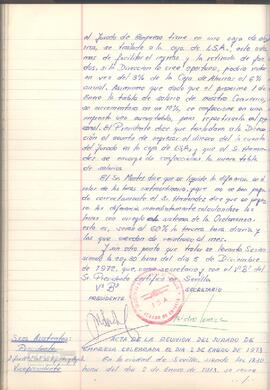 el Jurado de Empresa tiene en una caja de aho-
rros, se traslade a la caja de I.S.A., esto ade-
mas de facilitar el ingreso y la retirada de fon-
dos, si la Dirección lo cree oportuno, podría rentar
en vez del 3% de la Caja de Ahorros el 6%
anual. Asimismo que dado que el proximo 1 de
Enero la tabla de salario de nuestro Convenio,
se incrementara en un 10%, se confeccione en una
imprenta una nueva tabla, para repartirla al per-
sonal. El Presidente dice que trasladara a la Direc-
ción el asunto de ingresar el dinero de la cuenta
del Jurado en la caja de I.S.A., y que el Sr. Hernandez
se encarga de confeccionar la nueva tabla
de salario.
El Sr. Montes dice que se liquide la diferencia de
valor de las horas extraordinarias, que no se han paga-
do correctamente el Sr. Hernandez dice que se paga-
ran las diferencias inmediatamente calculandose las
horas con arreglo al sistema de la Ordenanza
esto es, seran al 60% la tercera hora diaria y
las que excedan de veinticinco al mes.
Sin otro punto que tratar se levanta sesion
siendo las 20,00 horas del dia 5 de Diciembre
de 1972, que como secretario y con el VºBº del
Sr. Presidente certifico en Sevilla.
VºBº
PRESIDENTE
SECRETARIO
I.S.A.
Sres. Asistentes:
Presidente
Vicepresidente
ACTA DE LA REUNION DEL JURADO DE
EMPRESA CELEBRADA EL DIA 2 DE ENERO DE 1973
En la ciudad de Sevilla, siendo las 18,30
horas del dia 2 de Enero de 1973, se reune